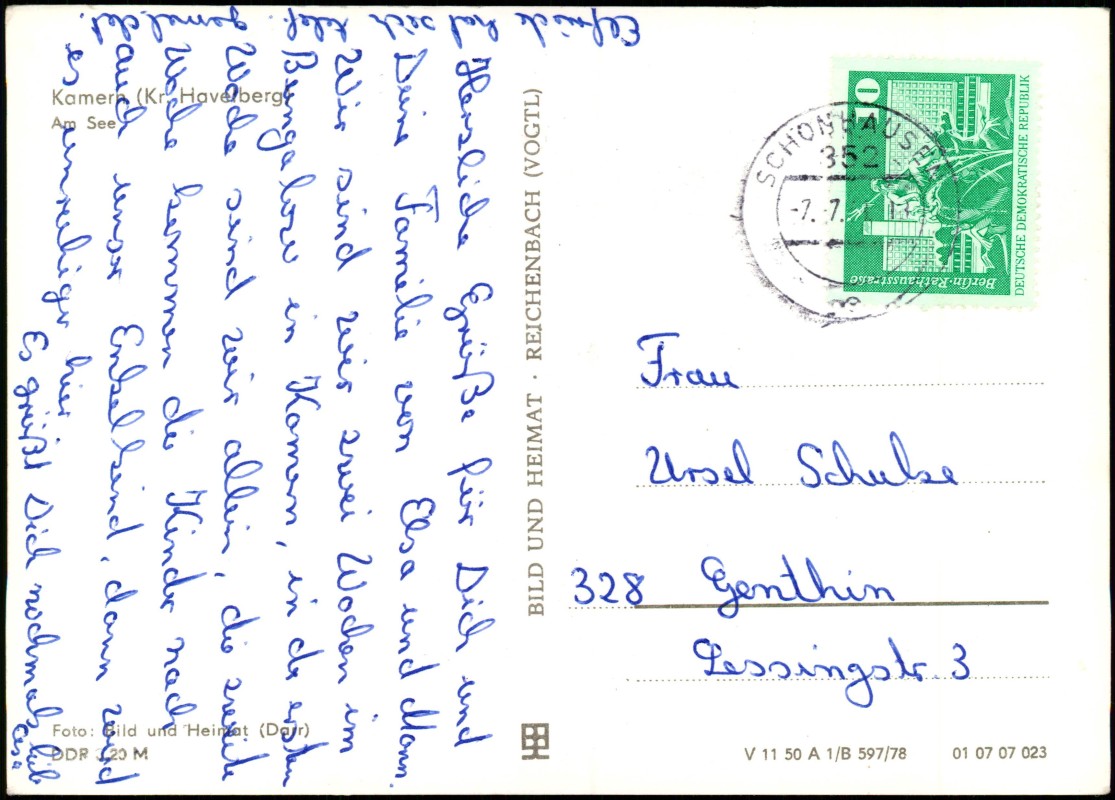 Kamern (Kr. Havelberg)
Am See
Herzliche Grüße für Dich und
Deine Familie von Elsa und Mann.
Wir sind wir zwei Wochen im
Bungalow in Kamern, in der ersten
Woche sind wir allein, die zweite
Woche kommen die Kinder nach
auch unser Enkelkind, dann wird
es unruhiger hier
Es grüßt Dich nochmals lieb
Elsa
Elfriede hat sich telef. gemeldet.
Foto: Bild und Heimat (Darr)
DDR 0,20 M
BILD UND HEIMAT · REICHENBACH (VOGTL)
SCHÖNHAUSEN
352
-7.-7.
10
DEUTSCHE DEMOKRATISCHE REPUBLIK
Berlin-Rathausstraße
Frau
Ursel Schulze
328 Genthin
Lessingstr. 3
V 11 50 A 1/B 597/78 01 07 07 023